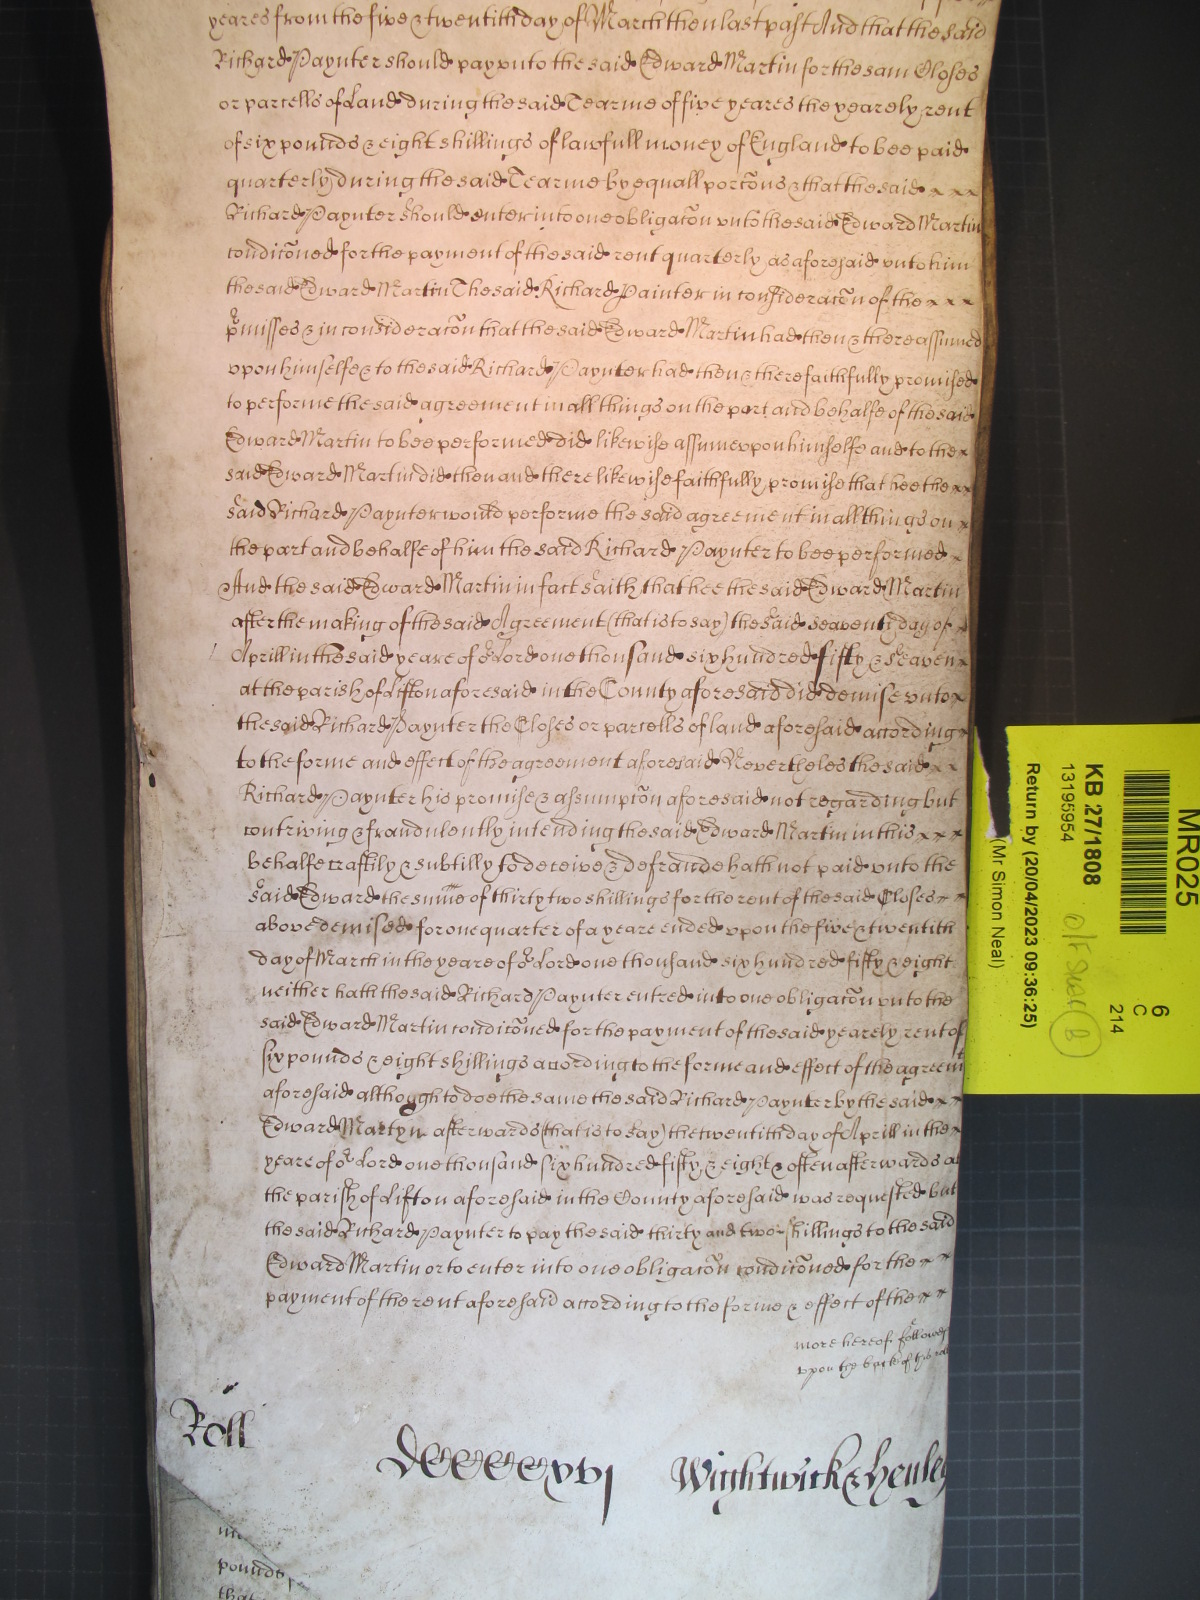 yeares from the five & twentith day of March then last past And that the said
Richard Paynter should pay unto the said Edward Martin for the sam Closes
or parcells of Land during the said Tearme of five yeares the yearely rent
of six pounds & eight shillings of lawfull money of England to bee paid
quarterly during the said Tearme by equall porc̃ons & that the said
Richard Paynter should enter into one obligac̃on unto the said Edward Martin
condic̃oned for the payment of the said rent quarterly as aforesaid unto him
the said Edward Martin The said Richard Painter in considerac̃on of the
p̃misses & in considerac̃on that the said Edward Martin had then & there assumed
upon himselfe & to the said Richard Paynter had then & there faithfully promised
to performe the said agreement in all things on the part and behalfe of the said
Edward Martin to bee performed did likewise assume upon himselfe and to the
said Edward Martin did then and there likewise faithfully promise that hee the
said Richard Paynter would performe the said agreement in all things on
the part and behalfe of him the said Richard Paynter to bee performed
And the said Edward Martin in fact saith that hee the said Edward Martin
after the making of the said Agreement (that is to say) the said seaventh day of
Aprill in the said yeare of oʳ Lord one thousand six hundred fifty & seaven
at the parish of Lifton aforesaid in the County aforesaid did demise unto
the said Richard Paynter the Closes or parcells of land aforesaid according
to the forme and effect of the agreement aforesaid Nevertheles the said
Richard Paynter his promise & assumpc̃on aforesaid not regarding but
contriving & fraudulently intending the said Edward Martin in this
behalfe craftily & subtilly to deceive & defraude hath not paid unto the
said Edward the sum̃e of thirty two shillings for the rent of the said Closes
above demised for one quarter of a yeare ended upon the five & twentith
day of March in the yeare of oʳ Lord one thousand six hundred fifty & eight
neither hath the said Richard Paynter entred into one obligac̃on unto the
said Edward Martin condic̃oned for the payment of the said yearely rent of
six pounds & eight shillings acording to the forme and effect of the agreemᵗ
aforesaid althought to doe the same the said Richard Paynter by the said
Edward Martyn afterwards (that is to say) the twentith day of Aprill in the
yeare of oʳ Lord one thousand six hundred fifty & eight & often afterwards at
the parish of Lifton aforesaid in the County aforesaid was requested but
the said Richard Paynter to pay the said thirty and two shillings to the said
Edward Martin or to enter into one obligac̃on condic̃oned for the
payment of the rent aforesaid according to the forme & effect of the
more hereof followes
upon the back of this roll
Roll
DCCCCxvj
Wightwick & Henley
pounds
that
MR025
6
C
214
KB 27/1808
13195954
Return by (20/04/2023 09:36:25)
(Mr Simon Neal)